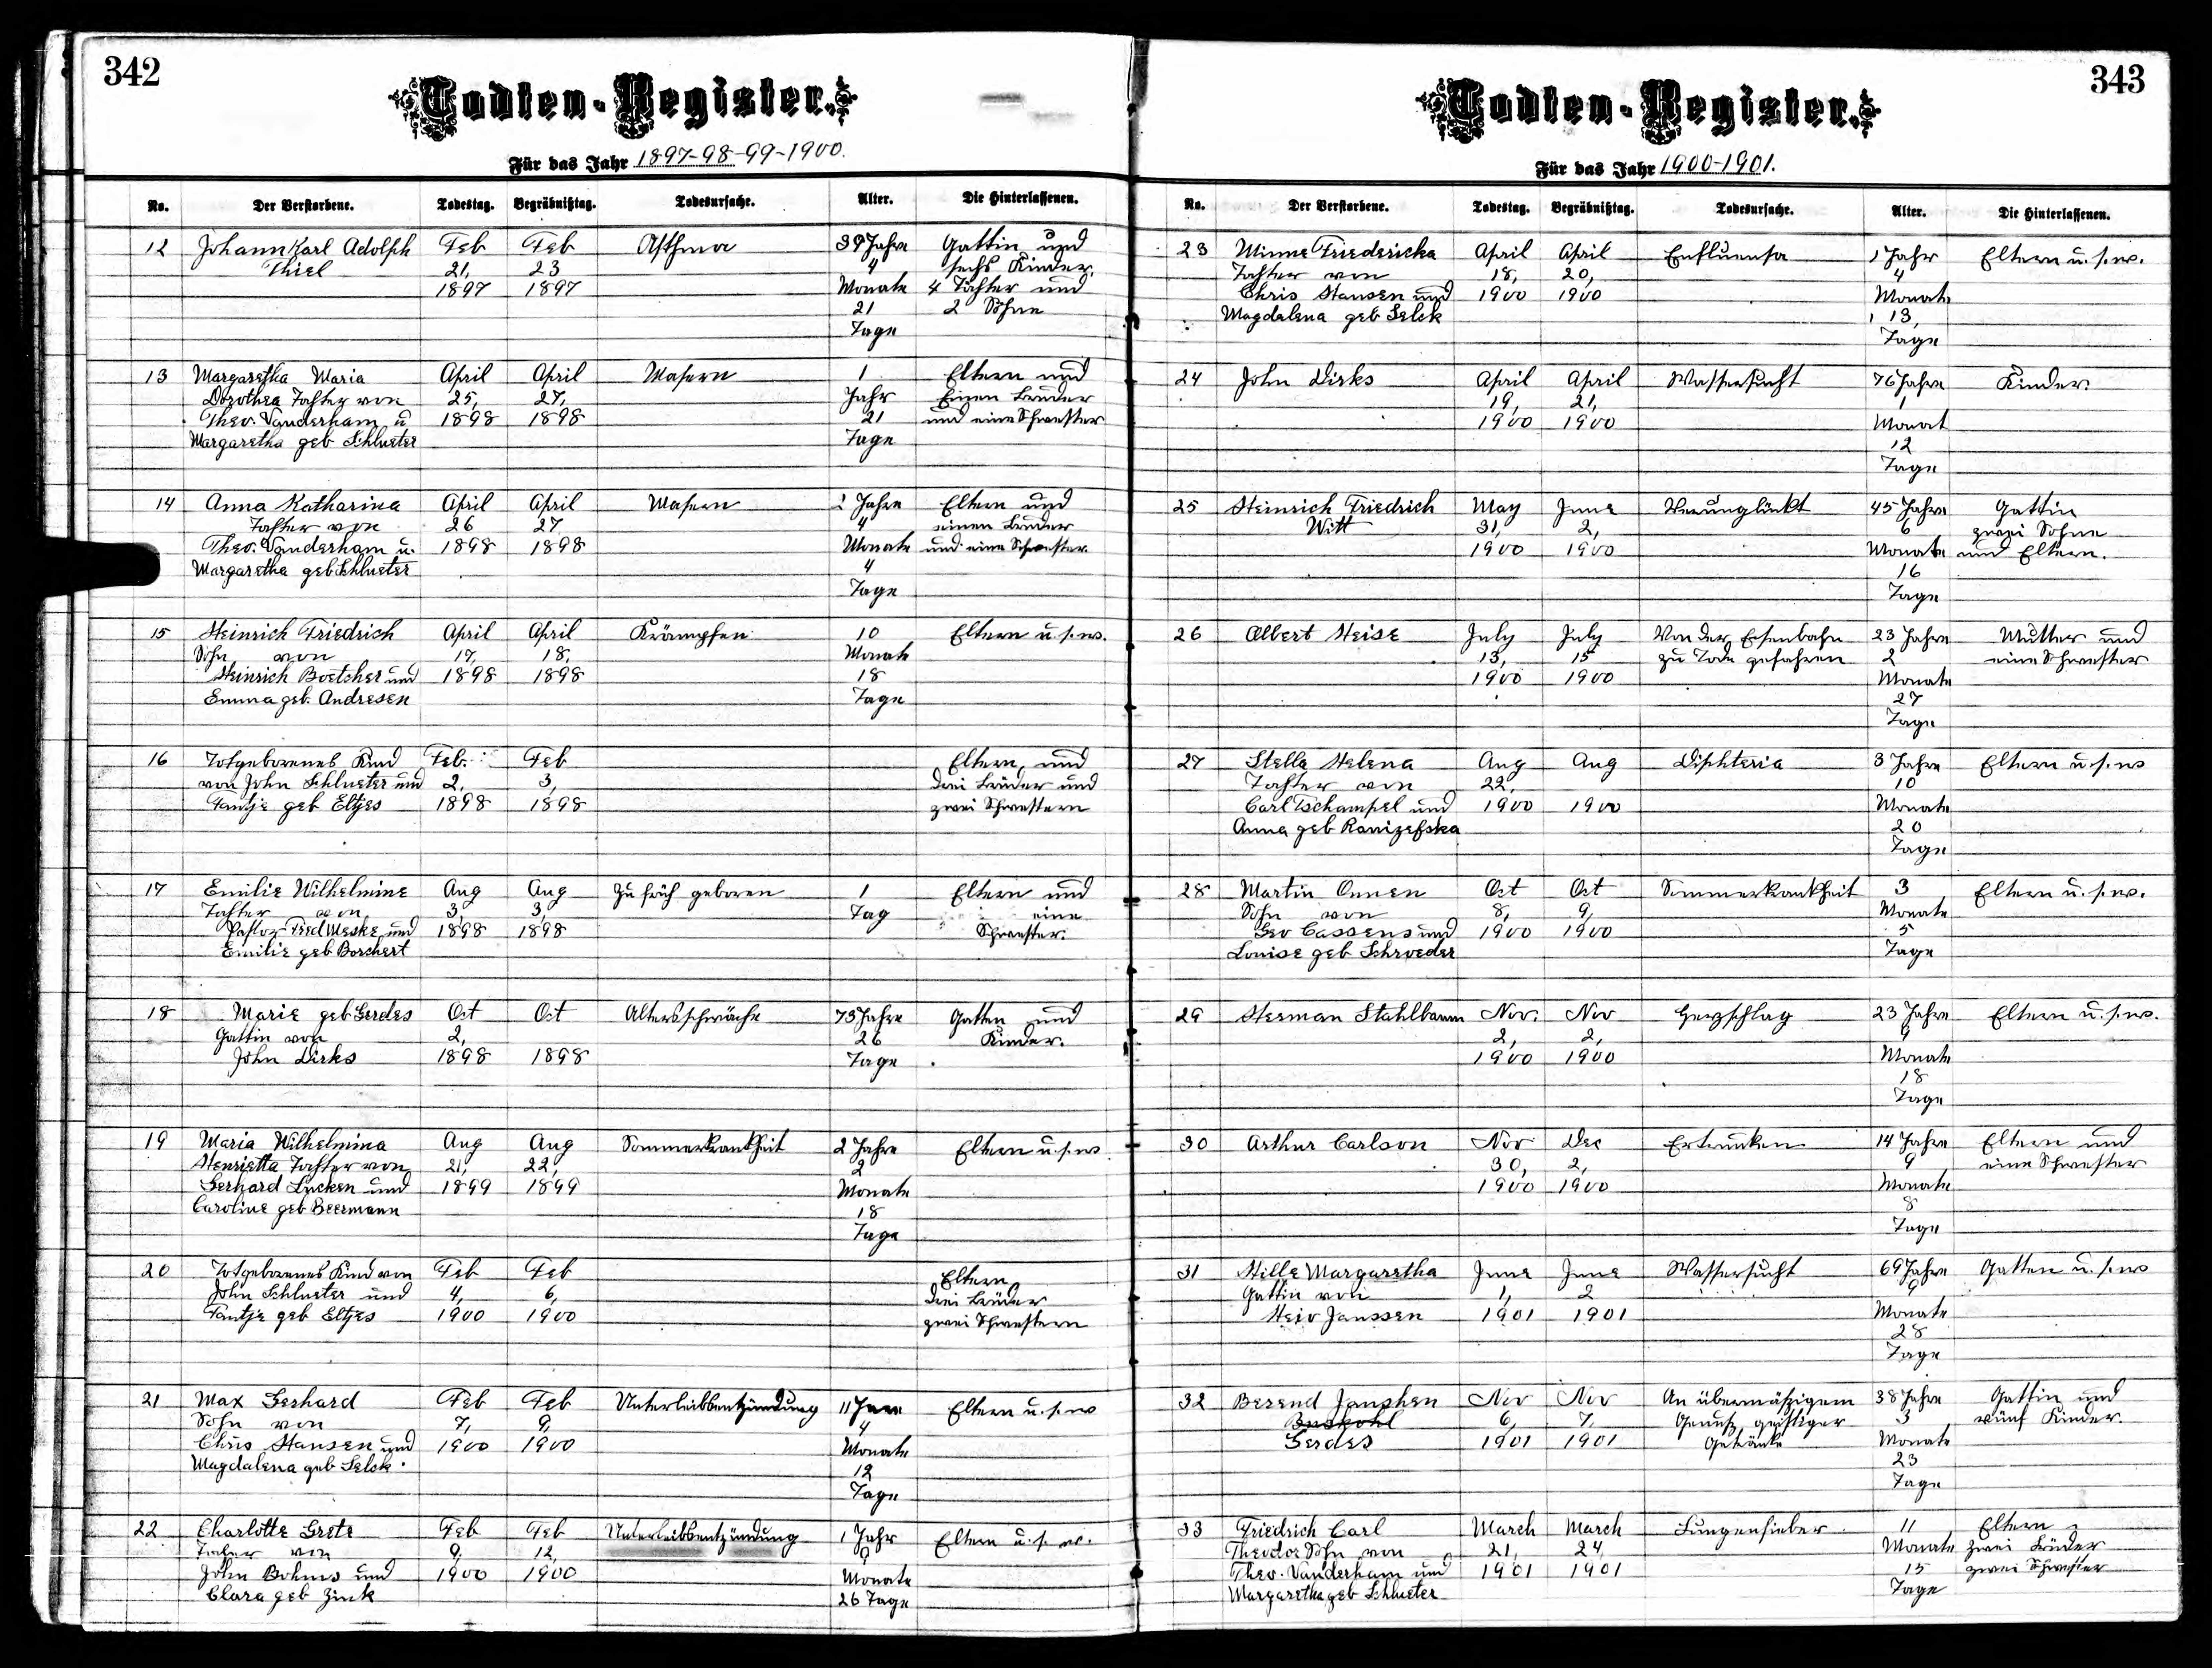 342
Todten-Register.
Für das Jahr 1897-98-99-1900.
No. Der Verstorbene. Todestag. Begräbnißtag. Todesursache. Alter. Die Hinterlassenen.
12 Johann Karl Adolph Feb Feb Asthma 39 Jahre Gattin und
Thiel 21, 23 4 sechs Kinder,
1897 1897 Monate 4 Töchter und
21 2 Söhne
Tage
13 Margaretha Maria April April Masern 1 Eltern und
Dorothea Tochter von 25, 27, Jahr Einen Bruder
Theo. Vanderham u 1898 1898 21 und eine Schwester
Margaretha geb Schlueter Tage
14 Anna Katharina April April Masern 2 Jahre Eltern und
Tochter von 26 27 4 einen Bruder
Theo. Vanderham u. 1898 1898 Monate und eine Schwester
Margaretha geb Schlueter 4
Tage
15 Heinrich Friedrich April April Krämpfen 10 Eltern u.s.w.
Sohn von 17, 18, Monate
Heinrich Boetcher und 1898 1898 18
Emma geb. Andresen Tage
16 Totgeborenes Kind Feb. Feb Eltern, und
von John Schlueter und 2, 3, drei Brüder und
Fantje geb Eltjes 1898 1898 zwei Schwestern
17 Emilie Wilhelmine Aug Aug Zu früh geboren 1 Eltern und
Tochter von 3, 3, Tag eine
Pastor Fred Meske und 1898 1898 Schwester.
Emilie geb Borchert
18 Marie geb Gerdes Oct Oct Altersschwäche 73 Jahre Gatten und
Gattin von 2, 26 Kinder.
John Dirks 1898 1898 Tage
19 Maria Wilhelmina Aug Aug Sommerkrankheit 2 Jahre Eltern u.s.w.
Henrietta Tochter von 21, 22, 2
Gerhard Lücken und 1899 1899 Monate
Caroline geb Beermann 18
Tage
20 Totgeborenes Kind von Feb Feb Eltern,
John Schlueter und 4, 6, drei Brüder
Fantje geb Eltjes 1900 1900 zwei Schwestern
21 Max Gerhard Feb Feb Unterleibbentzündung 11 Eltern u.s.w
Sohn von 7, 9, 4
Chris Hansen und 1900 1900 Monate
Magdalena geb Selck 12
Tage
22 Charlotte Grete Feb Feb Unterleibbentzündung 1 Jahr Eltern u.s.w.
Tochter von 9, 12,
John Bohms und 1900 1900 Monate
Clara geb Zink 26 Tage
343
Todten-Register.
Für das Jahr 1900-1901.
No. Der Verstorbene. Todestag. Begräbnißtag. Todesursache. Alter. Die Hinterlassenen.
23 Minne Friedericka April April Enfluensa 1 Jahr Eltern u.s.w.
Tochter von 18, 20, 4
Chris Hansen und 1900 1900 Monate
Magdalena geb Selck 13,
Tage
24 John Dirks April April Wassersucht 76 Jahre Kinder.
19, 21, 1
1900 1900 Monat
12
Tage
25 Heinrich Friedrich May June Verunglückt 45 Jahre Gattin
Witt 31, 2, 6 zwei Söhne
1900 1900 Monate und Eltern.
16
Tage
26 Albert Heise July July Von der Eisenbahn 23 Jahre Mutter und
13, 15 zu Tode gefahren 2 eine Schwester
1900 1900 Monate
27
Tage
27 Stella Helena Aug Aug Diphteria 3 Jahre Eltern u.s.w
Tochter von 22, 10
Carl Tschampel und 1900 1900 Monate
Anna geb Ranizefska 20
Tage
28 Martin Onnen Oct Oct Sommerkrankheit 3 Eltern u.s.w.
Sohn von 8, 9, Monate
Geo Cassens und 1900 1900 5
Louise geb Schroeder Tage
29 Herman Stahlbaum Nov. Nov Herzschlag 23 Jahre Eltern u.s.w.
2, 2, 9
1900 1900 Monate
18
Tage
30 Arthur Carlson Nov Dec Ertrunken 14 Jahre Eltern und
30, 2, 9 eine Schwester
1900 1900 Monate
8
Tage
31 Hille Margaretha June June Wassersucht 69 Jahre Gatten u.s.w
Gattin von 1, 2 9
Heio Janssen 1901 1901 Monate
28
Tage
32 Berend Janshen Nov Nov An übermäßigem 38 Jahre Gattin und
Buskohl 6, 7, Genuß geistiger 3 vünf Kinder.
Gerdes 1901 1901 Getränke Monate
23
Tage
33 Friedrich Carl March March Lungenfieber 11 Eltern
Theodor Sohn von 21, 24, Monate zwei Brüder
Theo. Vanderham und 1901 1901 15 zwei Schwester
Margaretha geb Schlueter Tage